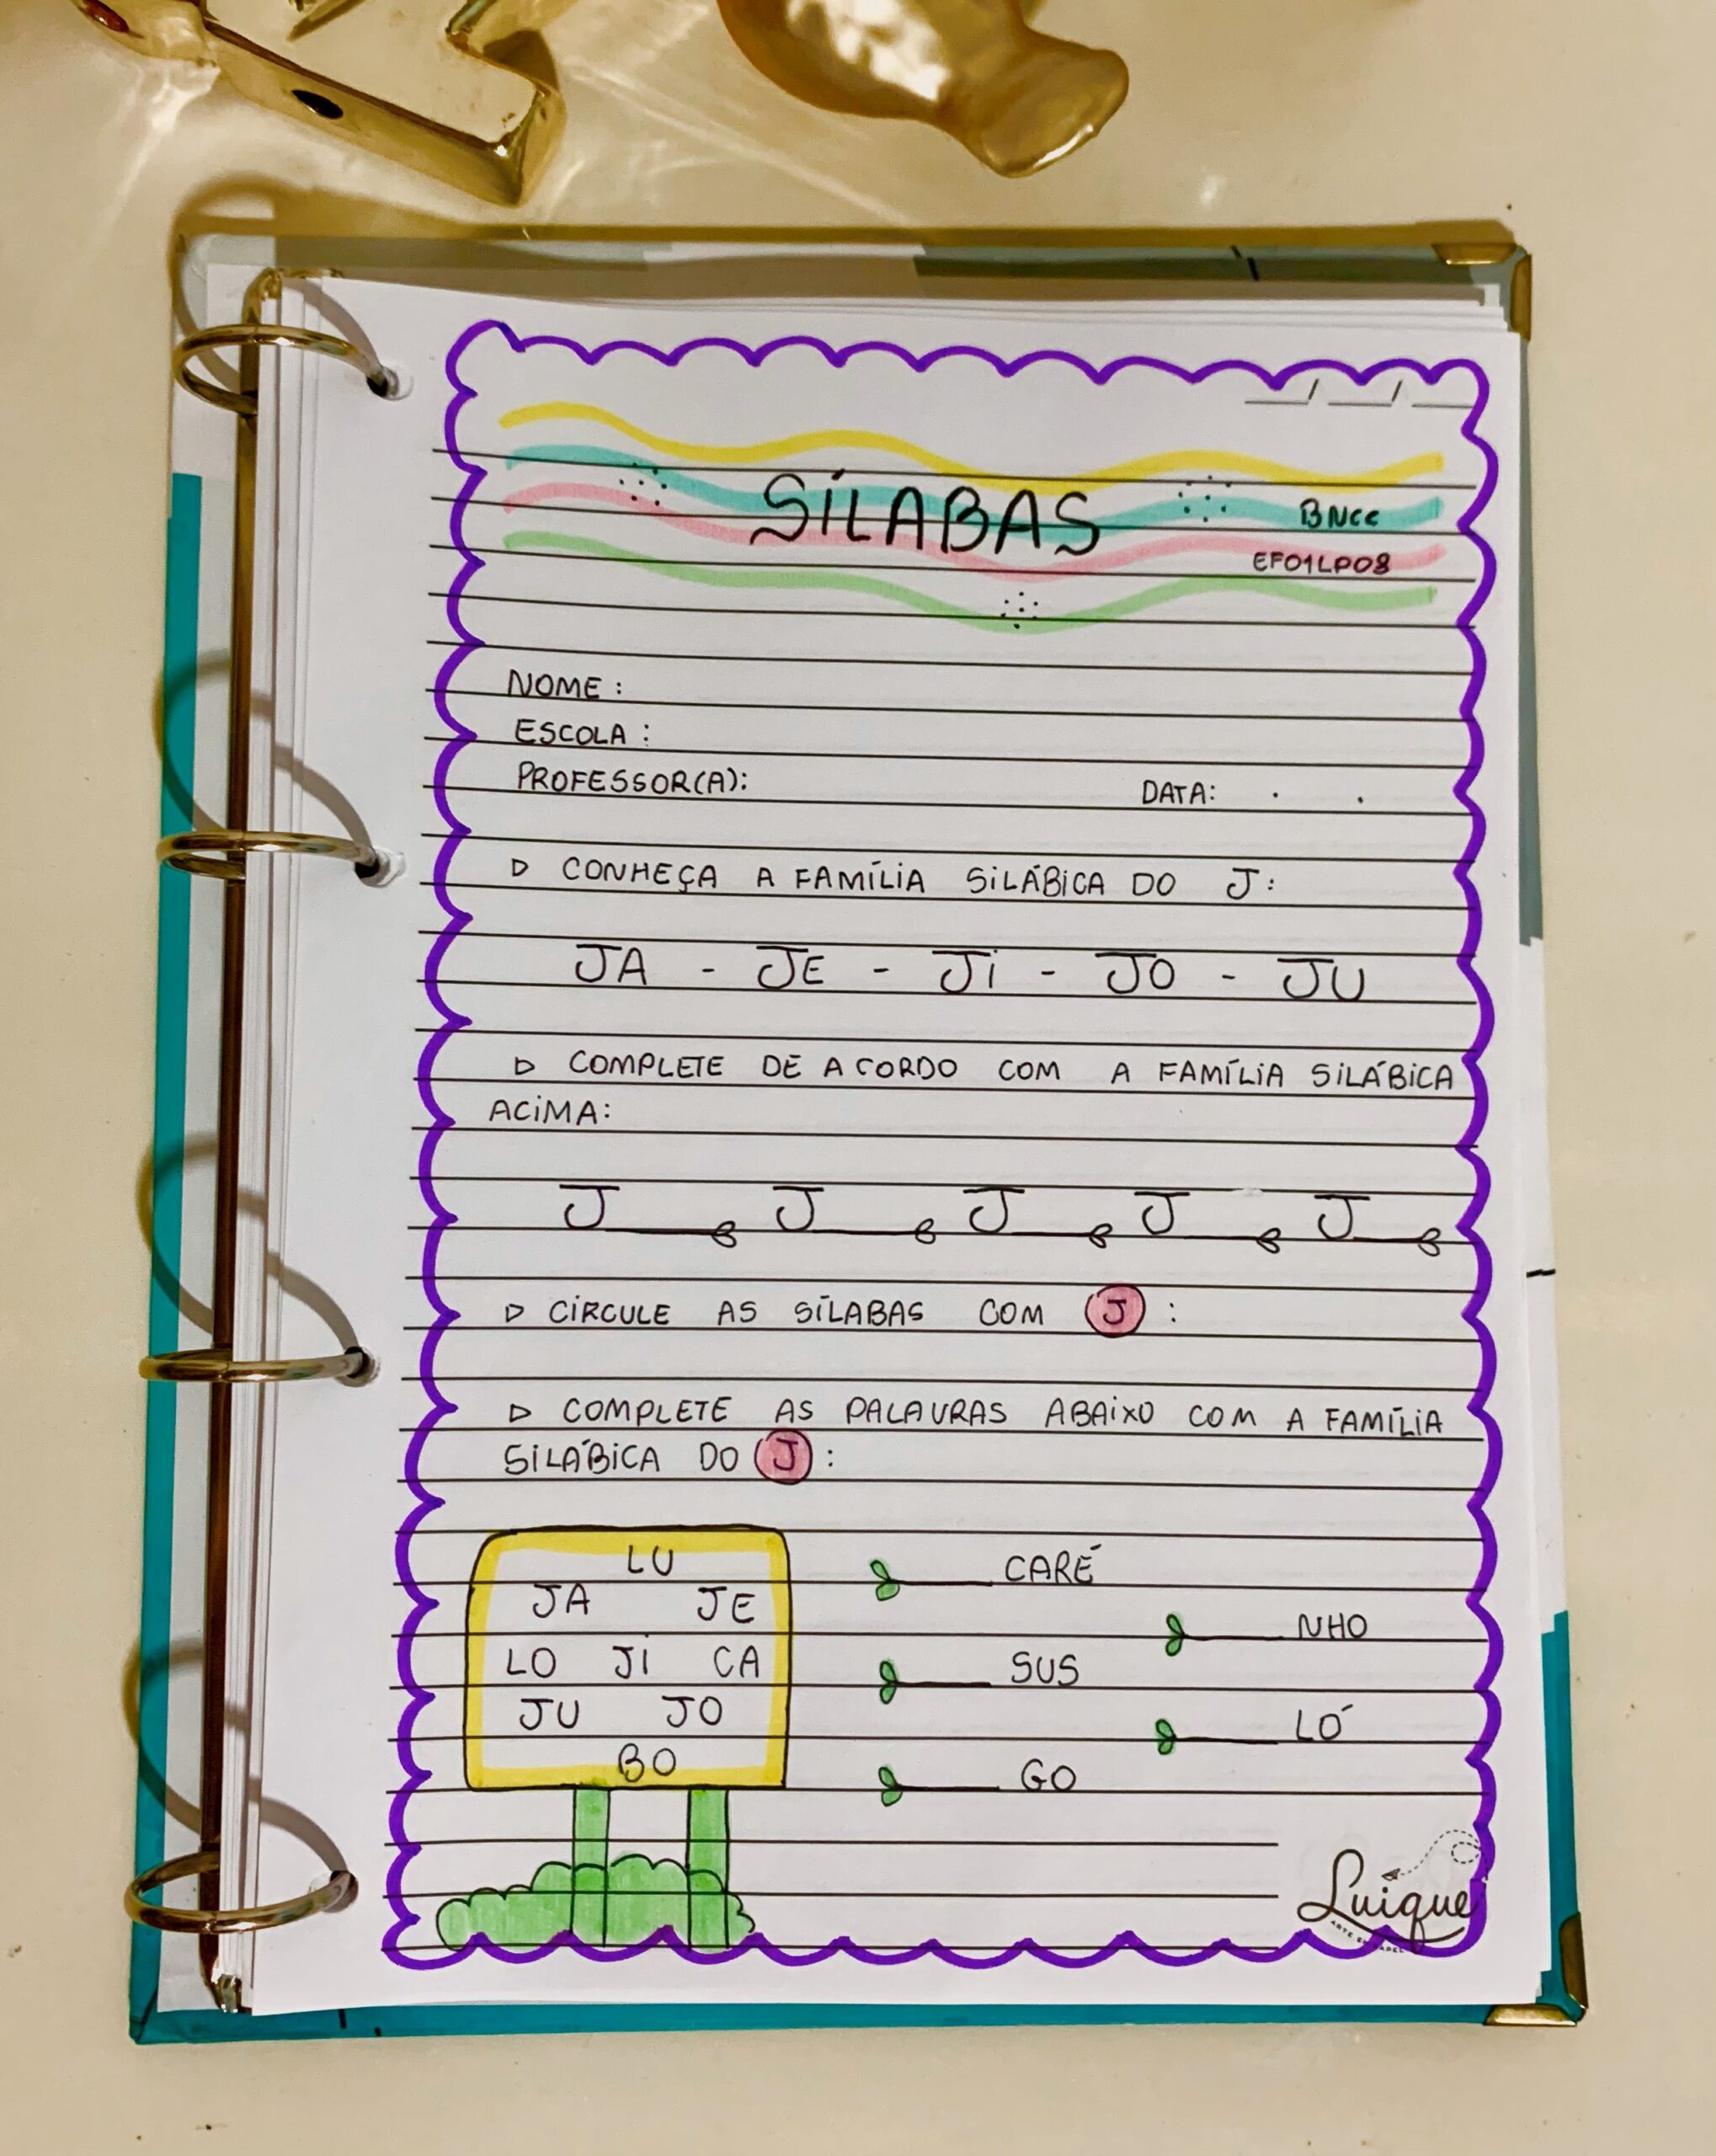 __/__/__
SÍLABAS
BNCC
EF01LP08
NOME:
ESCOLA:
PROFESSOR(A): DATA: . .
▷ CONHEÇA A FAMÍLIA SILÁBICA DO J:
JA - JE - JI - JO - JU
▷ COMPLETE DE ACORDO COM A FAMÍLIA SILÁBICA
ACIMA:
J___ J___ J___ J___ J___
▷ CIRCULE AS SÍLABAS COM J :
▷ COMPLETE AS PALAVRAS ABAIXO COM A FAMÍLIA
SILÁBICA DO J :
LU
JA JE
LO JI CA
JU JO
BO
___ CARÉ
___ NHO
___ SUS
___ LÓ
___ GO
Luique